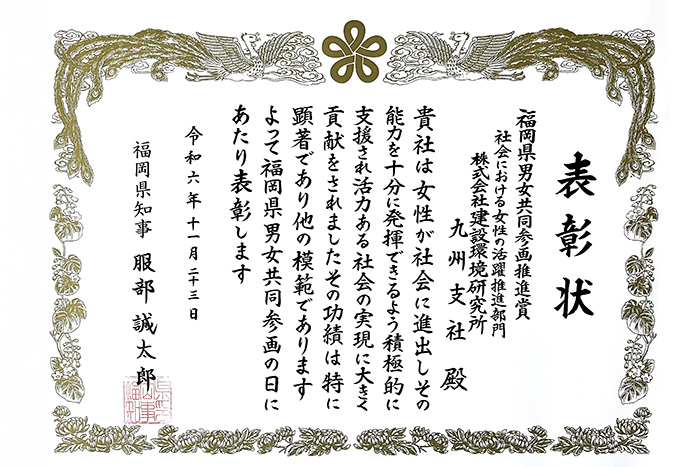 表彰状
福岡県男女共同参画推進賞
社会における女性の活躍推進部門
株式会社建設環境研究所
九州支社 殿
貴社は女性が社会に進出しその
能力を十分に発揮できるよう積極的に
支援され活力ある社会の実現に大きく
貢献をされましたその功績は特に
顕著であり他の模範であります
よって福岡県男女共同参画の日に
あたり表彰します
令和六年十一月二十三日
福岡県知事 服部誠太郎